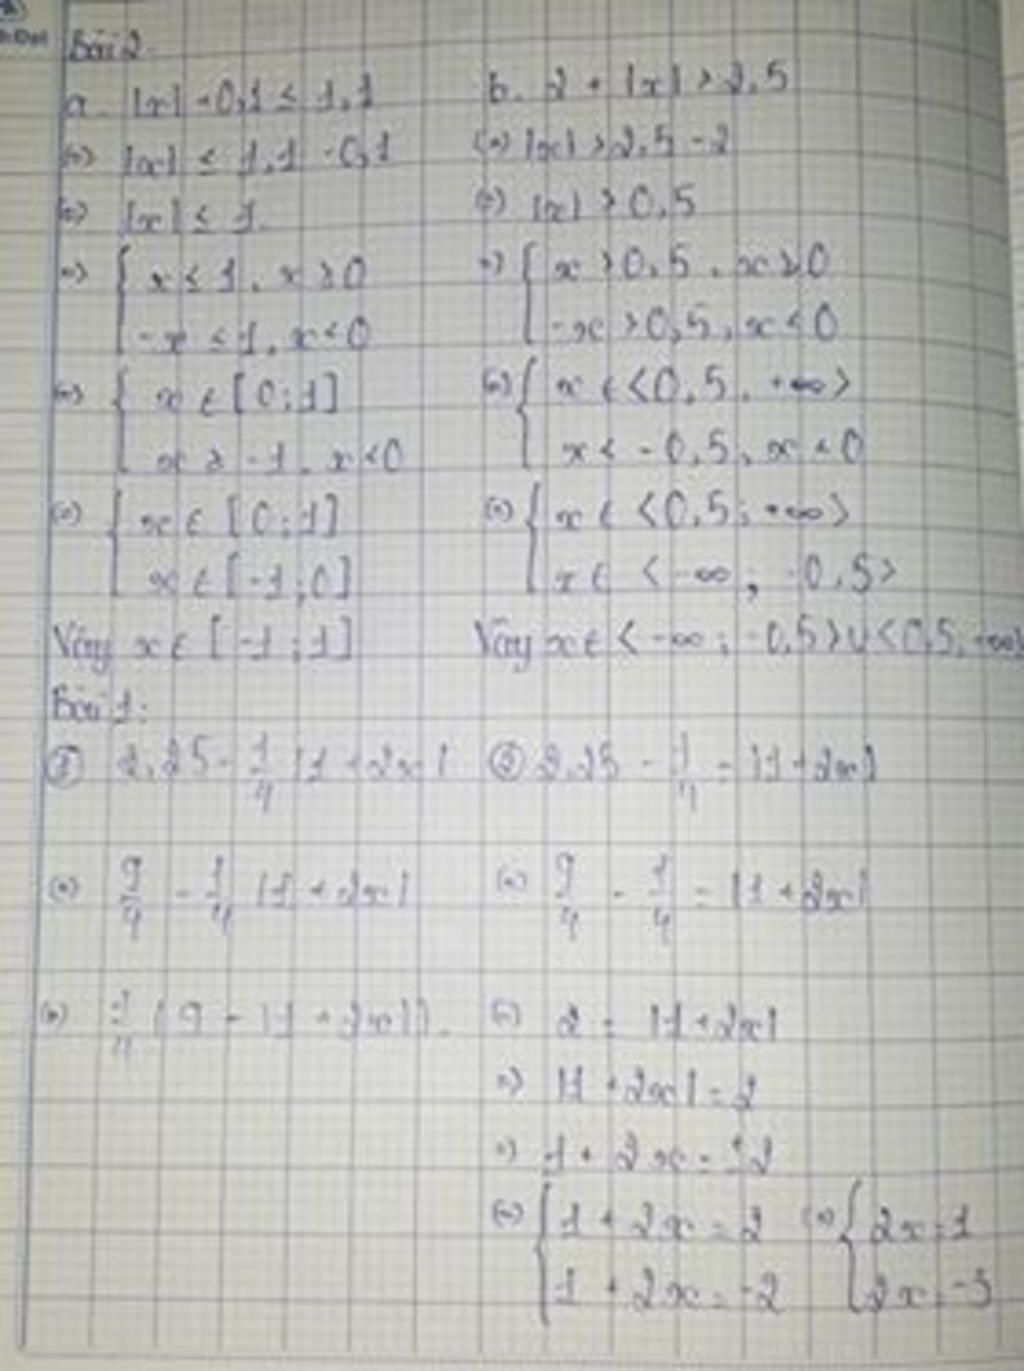 Bài 2
a. |x| + 0,1 ≤ 1,1
(=) |x| ≤ 1,1 - 0,1
(=) |x| ≤ 1.
(=) { x ≤ 1, x ≥ 0
-x ≤ 1, x < 0
(=) { x ∈ [0;1]
x ≥ -1, x < 0
(=) { x ∈ [0;1]
x ∈ [-1;0]
Vậy x ∈ [-1;1]
b. 2 + |x| > 2,5
(=) |x| > 2,5 - 2
(=) |x| > 0,5
(=) { x > 0,5, x ≥ 0
-x > 0,5, x < 0
(=) { x ∈ <0,5, +∞>
x < -0,5, x < 0
(=) { x ∈ <0,5; +∞>
x ∈ <-∞; -0,5>
Vậy x ∈ <-∞; -0,5> ∪ <0,5, +∞>
Bài 1:
① 2,25 - 1/4 |1 + 2x|
(=) 9/4 - 1/4 |1 + 2x|
(=) 1/4 (9 - |1 + 2x|).
② 2,25 - 1/4 = |1 + 2x|
(=) 9/4 - 1/4 = |1 + 2x|
(=) 2 = |1 + 2x|
(=) |1 + 2x| = 2
(=) 1 + 2x = ±2
(=) { 1 + 2x = 2 (=) { 2x = 1
1 + 2x = -2 2x = -3